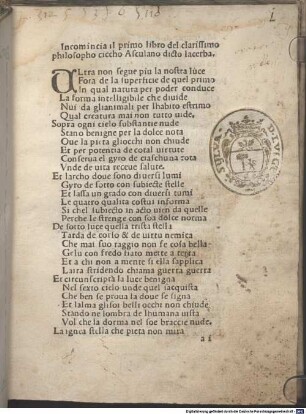 Incomincia il primo libro del clarissimo
philosopho ciccho Asculano dicto lacerba.
ULtra non segue piu la nostra luce
Fora de la superficie de quel primo
In qual natura per poder conduce
La forma intelligibile che diuide
Nui da glianimali per lhabito estrimo
Qual creatura mai non tutto uide.
Sopra ogni cielo substantie nude
Stano benigne per la dolce nota
Que la pieta gliocchi non chiude
Et per potentia de cotal uirtute
Conserua el gyro de ciaschuna rota
Vnde de uita receue salute.
Et larcho doue sono diuersi lumi
Gyro de sotto con subiecte stelle
Et lassa un grado con diuersi tumi
Le quatro qualita costui informa
Si chel subiecto in actio uien da quelle
Perche le strenge con soa dolce norma
De sotto luce quella trista stella
Tarda de corso & de uirtu nemica
Che mai suo raggio non fe cosa bella
Gelu con fredo fiato mette a terra
Et a chi non a mente si ella sapplica
Laira stridendo chiama guerra guerra
Et circunscripta la luce benigna
Nel sexto cielo unde quel iacquista
Che ben se proua la doue se signa
Et lalma gli soi belli occhi non chiude
Stando ne lombra de lhumana uista
Vol che la dorma nel soe braccie nude.
La ignea stella che pieta non mira
a i